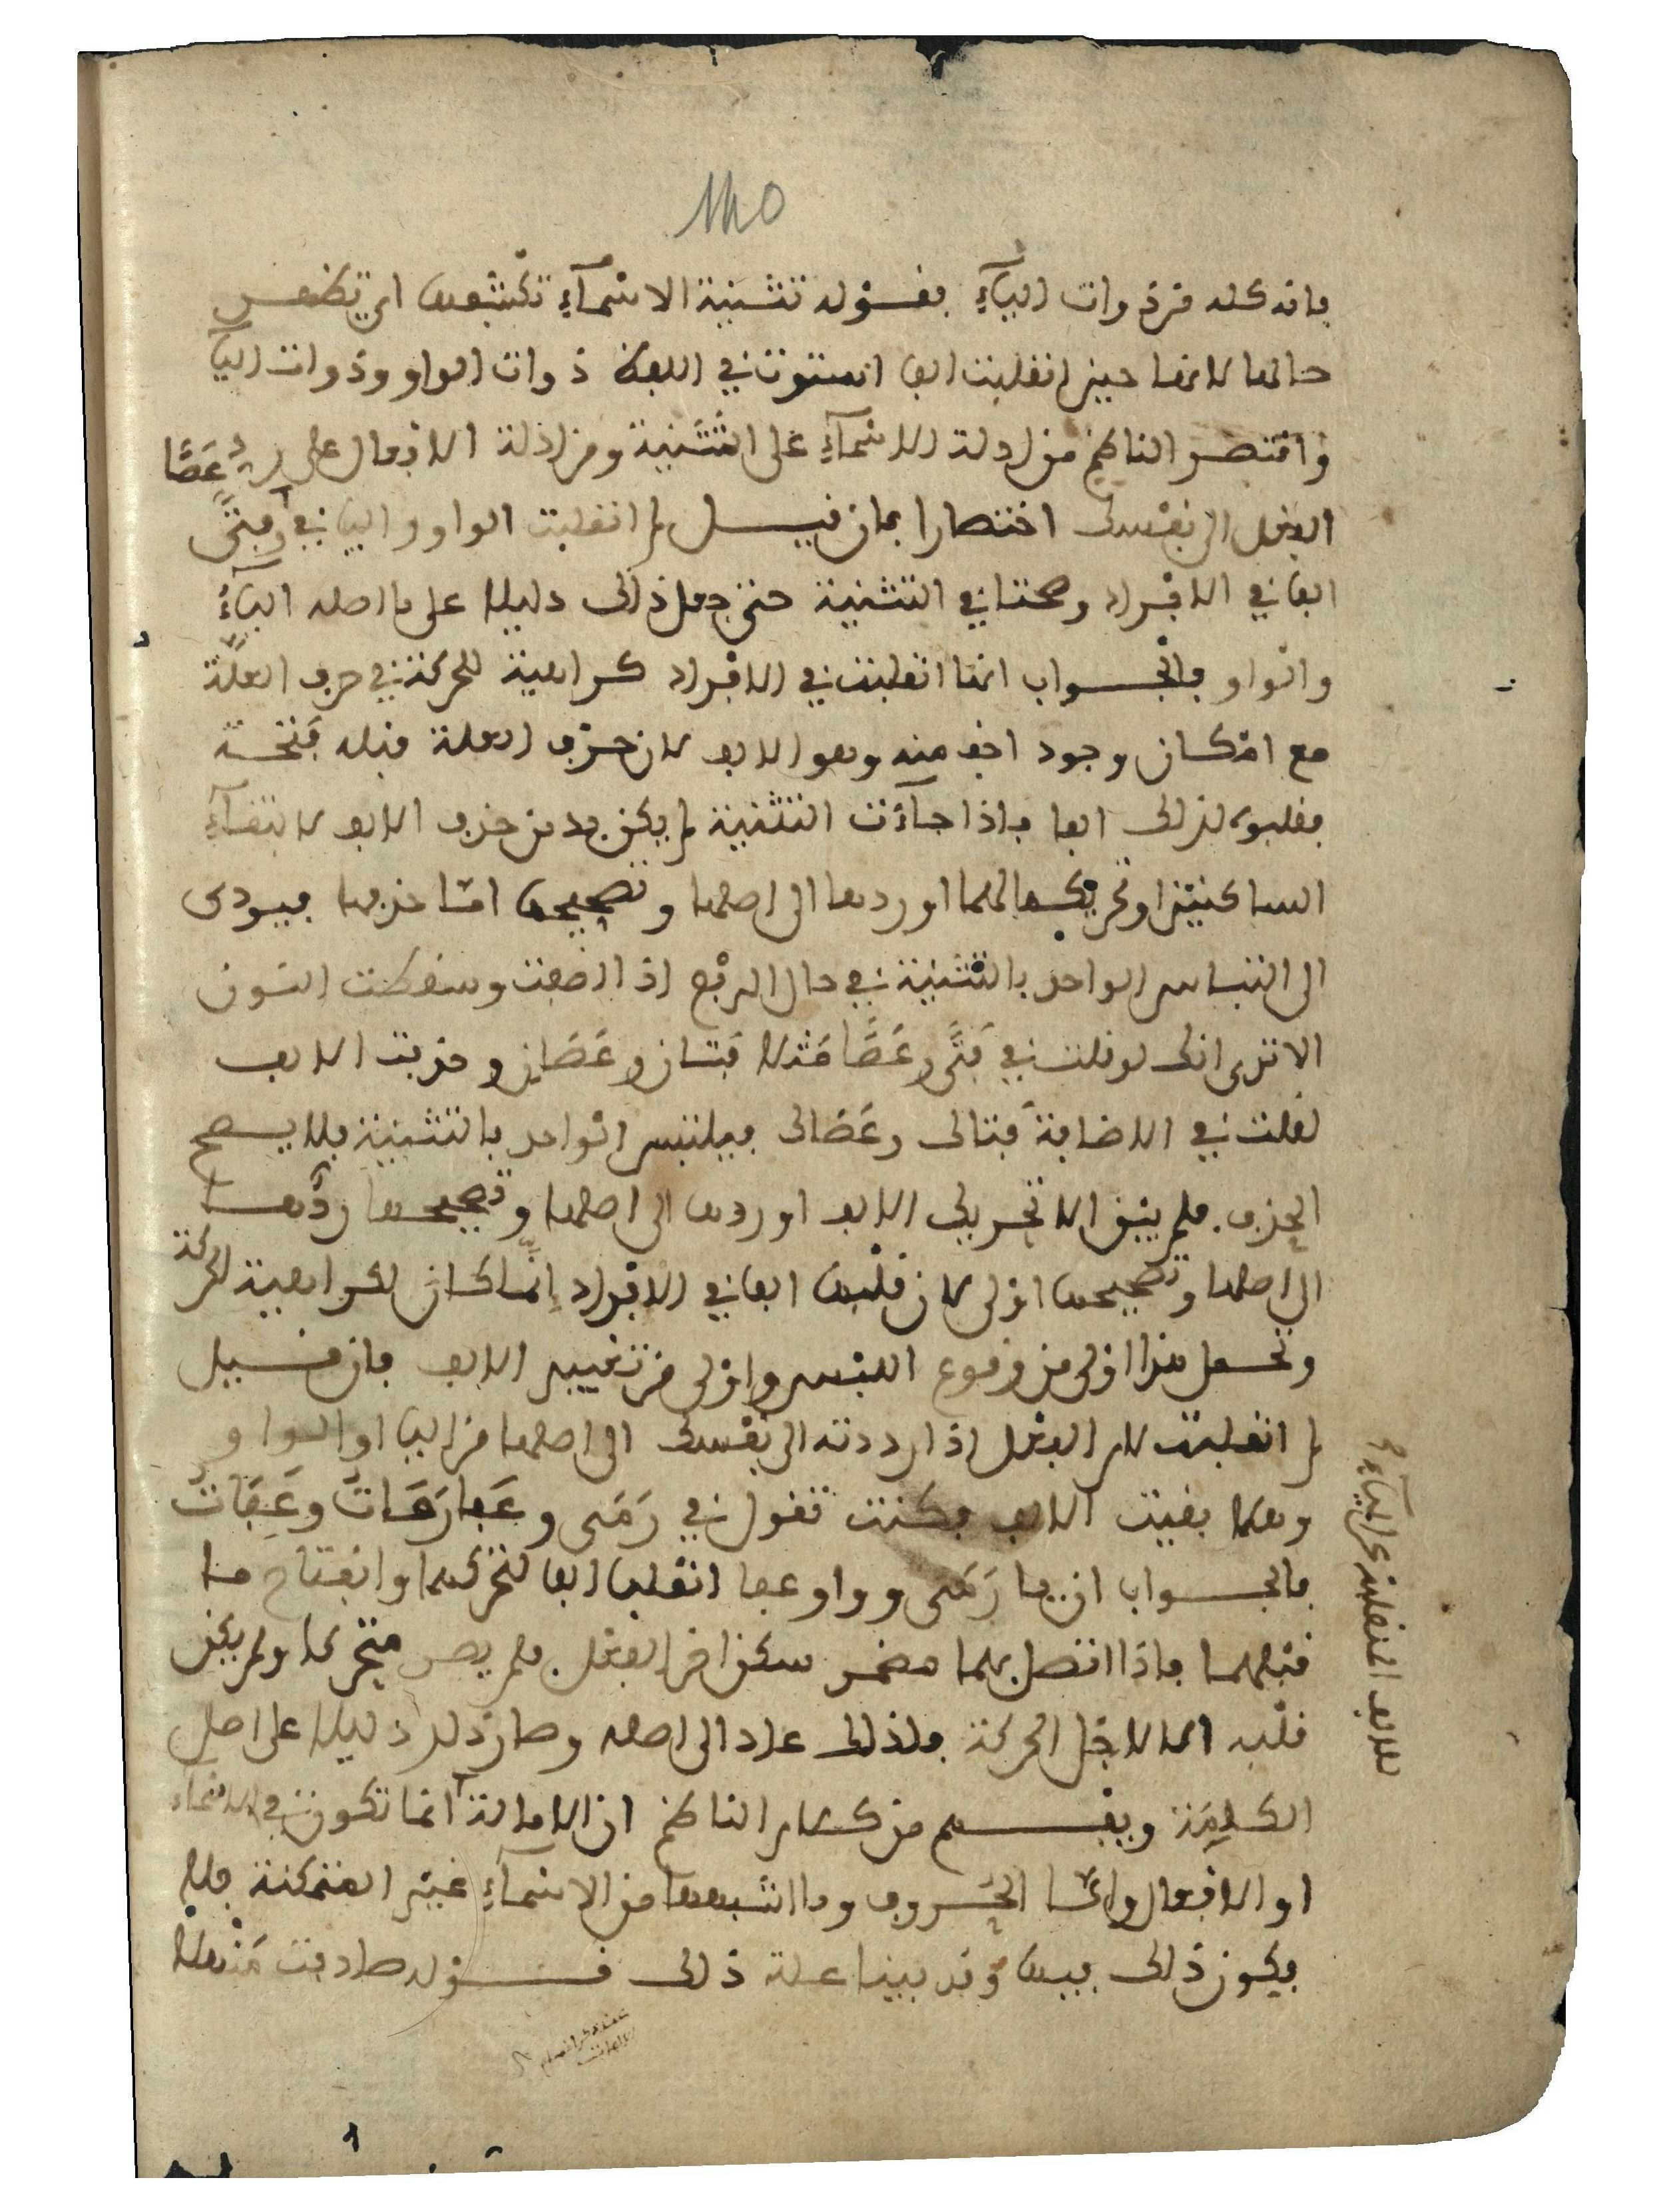 فانه كله من ذوات الياء فقوله تثنية الاسماء تكشفها اي تظهر
حالها لانها حين انقلبت الفا استوت في اللفظ ذوات الواو وذوات اليا
واقتصر الناظم من ادلة الاسماء على التثنية ومن ادلة الافعال على رد
الفعل الى نفسك اختصارا فان قيل لم انقلبت الواو واليا في عصا وفتى
الفا في الافراد وصحتا في التثنية حتى جعل ذلك دليلا على ما اصله الياء
والواو فالجواب انها انقلبت في الافراد كراهية للحركة في حرف العلة
مع امكان وجود اخف منه وهو الالف لان حرف العلة قبله فتحة
فقلبوه لذلك الفا فاذا جاءت التثنية لم يكن بد من حذف الالف لالتقاء
الساكنين او تحريكها لهما او ردها الى اصلها وتصحيحها اما حذفها فيودي
الى التباس الواحد بالتثنية في حال الرفع اذا اضفت وسقطت النون
الا ترى انك لو قلت في فتى وعصا مثلا فتان وعصان وحذفت الالف
لقلت في الاضافة فتاك وعصاك فيلتبس الواحد بالتثنية فلا يصح
الحذف فلم يبق الا تحريك الالف او ردها الى اصلها وتصحيحها وردها
الى اصلها وتصحيحها اولى لان قلبها الفا في الافراد انما كان لكراهية الحركة
وتحمل هذا اولى من وقوع اللبس واولى من تغيير الالف فان قيل
لم انقلبت لام الفعل اذا رددته الى نفسك الى اصلها من اليا او الواو
وهلا بقيت الالف فكنت تقول في رمى وعفا رمات وعفات
فالجواب ان يا رمى وواو عفا انقلبا الفا لتحركهما وانفتاح ما
قبلهما فاذا اتصل بهما مضمر سكن اخر الفعل فلم يصر متحركا ولم يكن
قلبه الا لاجل الحركة فلذلك عاد الى اصله وصار ذلك دليلا على اصل
الكلمة ويفهم من كلام الناظم ان الامالة انما تكون في الاسماء
او الافعال واما الحروف وما اشبهها من الاسماء غير المتمكنة فلا
يكون ذلك فيها وقد بينا علة ذلك قوله صادفت منهلا
للالف المنقلبة عن الياء